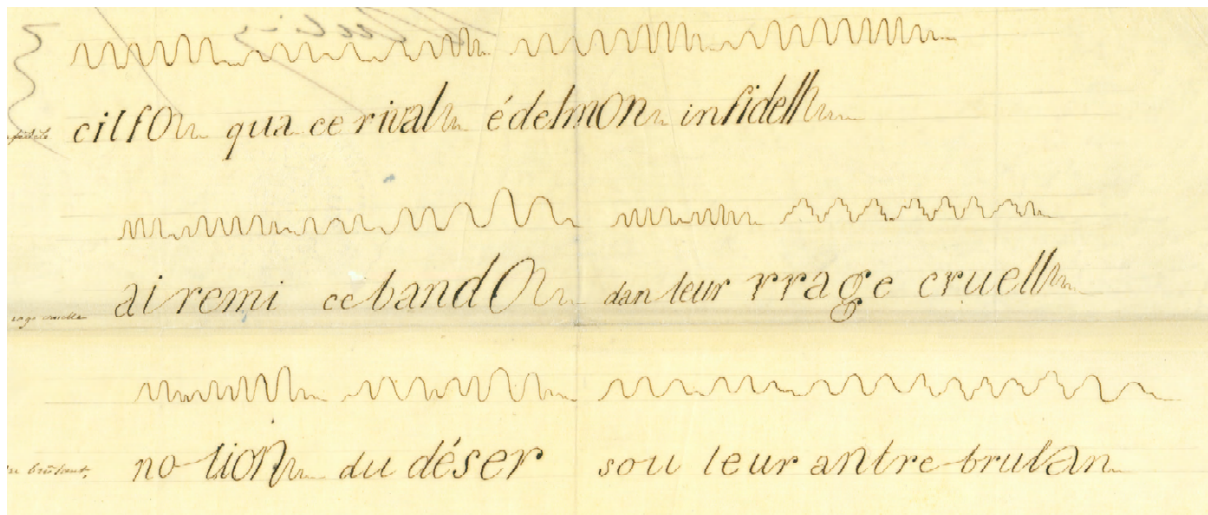 cilfo qua ce rival édelmon infidell
airemi ce bando dan leur rrage cruell
rage cruelle
no lion du déser sou leur antre brulan
brûlant.